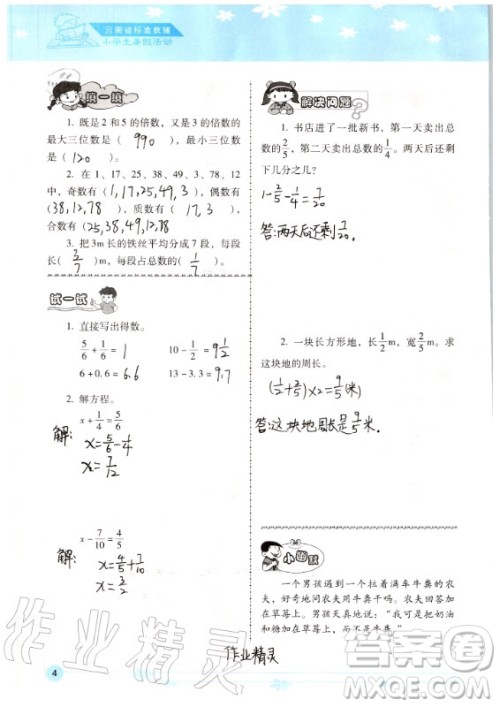 云南省标准教辅
小学生暑假活动
填一填
1. 既是 2 和 5 的倍数，又是 3 的倍数的
最大三位数是（ 990 ），最小三位数
是（ 120 ）。
2. 在 1、17、25、38、49、3、78、12
中，奇数有（1,17,25,49,3），偶数有
(38,12,78)，质数有（ 17,3 ），
合数有(25,38,49,78,12)。
3. 把 3m 长的铁丝平均分成 7 段，每段
长（ 3/7 ）m，每段占总数的（ 1/7 ）。
试一试
1. 直接写出得数。
5/6 + 1/6 = 1 10 - 1/2 = 9 1/2
6 + 0.6 = 6.6 13 - 3.3 = 9.7
2. 解方程。
x + 1/4 = 5/6
解: x = 5/6 - 1/4
x = 7/12
x - 7/10 = 4/5
解: x = 4/5 + 7/10
x = 3/2
解决问题
1. 书店进了一批新书，第一天卖出总
数的 2/5，第二天卖出总数的 1/4。两天后还剩
下几分之几？
1 - 2/5 - 1/4 = 7/20
答: 两天后还剩 7/20.
2. 一块长方形地，长 1/2 m，宽 2/5 m。求
这块地的周长。
(1/2 + 2/5) × 2 = 9/5 (米)
答: 这块地周长是 9/5 米.
小幽默
一个男孩遇到一个拉着满车牛粪的农
夫，好奇地问农夫用牛粪干吗。农夫回答加
在草莓上。男孩天真地说：“我可是把奶油
和糖加在草莓上的。”
作业精灵
作业精灵
答案圈
MXQE.COM
4